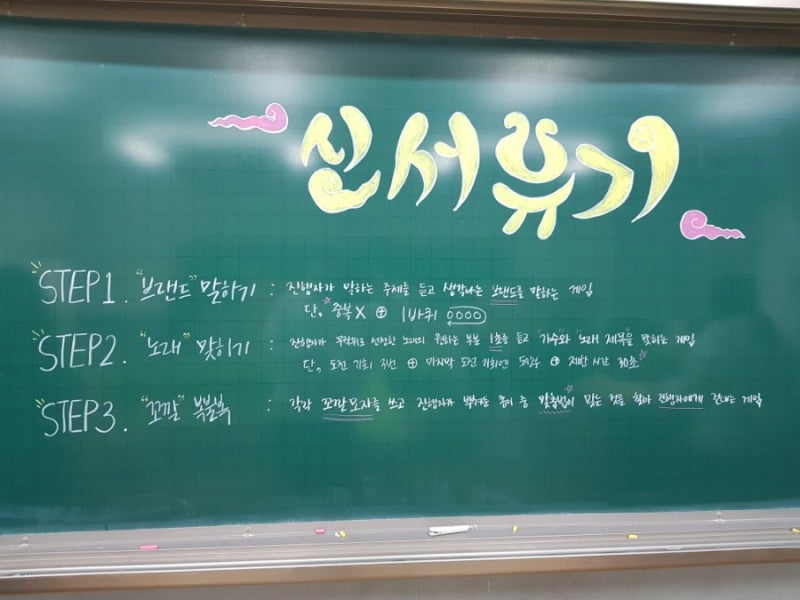 신서유기
STEP1. "브랜드" 말하기 : 진행자가 말하는 주제를 듣고 생각나는 브랜드를 말하는 게임
단, 중복X ⊕ 1바퀴
STEP2. "노래" 맞히기 : 진행자가 무작위로 선정한 노래의 원하는 부분 1초를 듣고 "가수"와 "노래 제목"을 맞히는 게임
단, 도전 기회 3번 ⊕ 마지막 도전 기회엔 ⊕ 제한 시간 30초
STEP3. "꼬깔" 복불복 : 각각 꼬깔모자를 쓰고 진행자가 뿌려둔 종이 중 맞춤법이 맞는 것을 찾아 진행자에게 건네는 게임